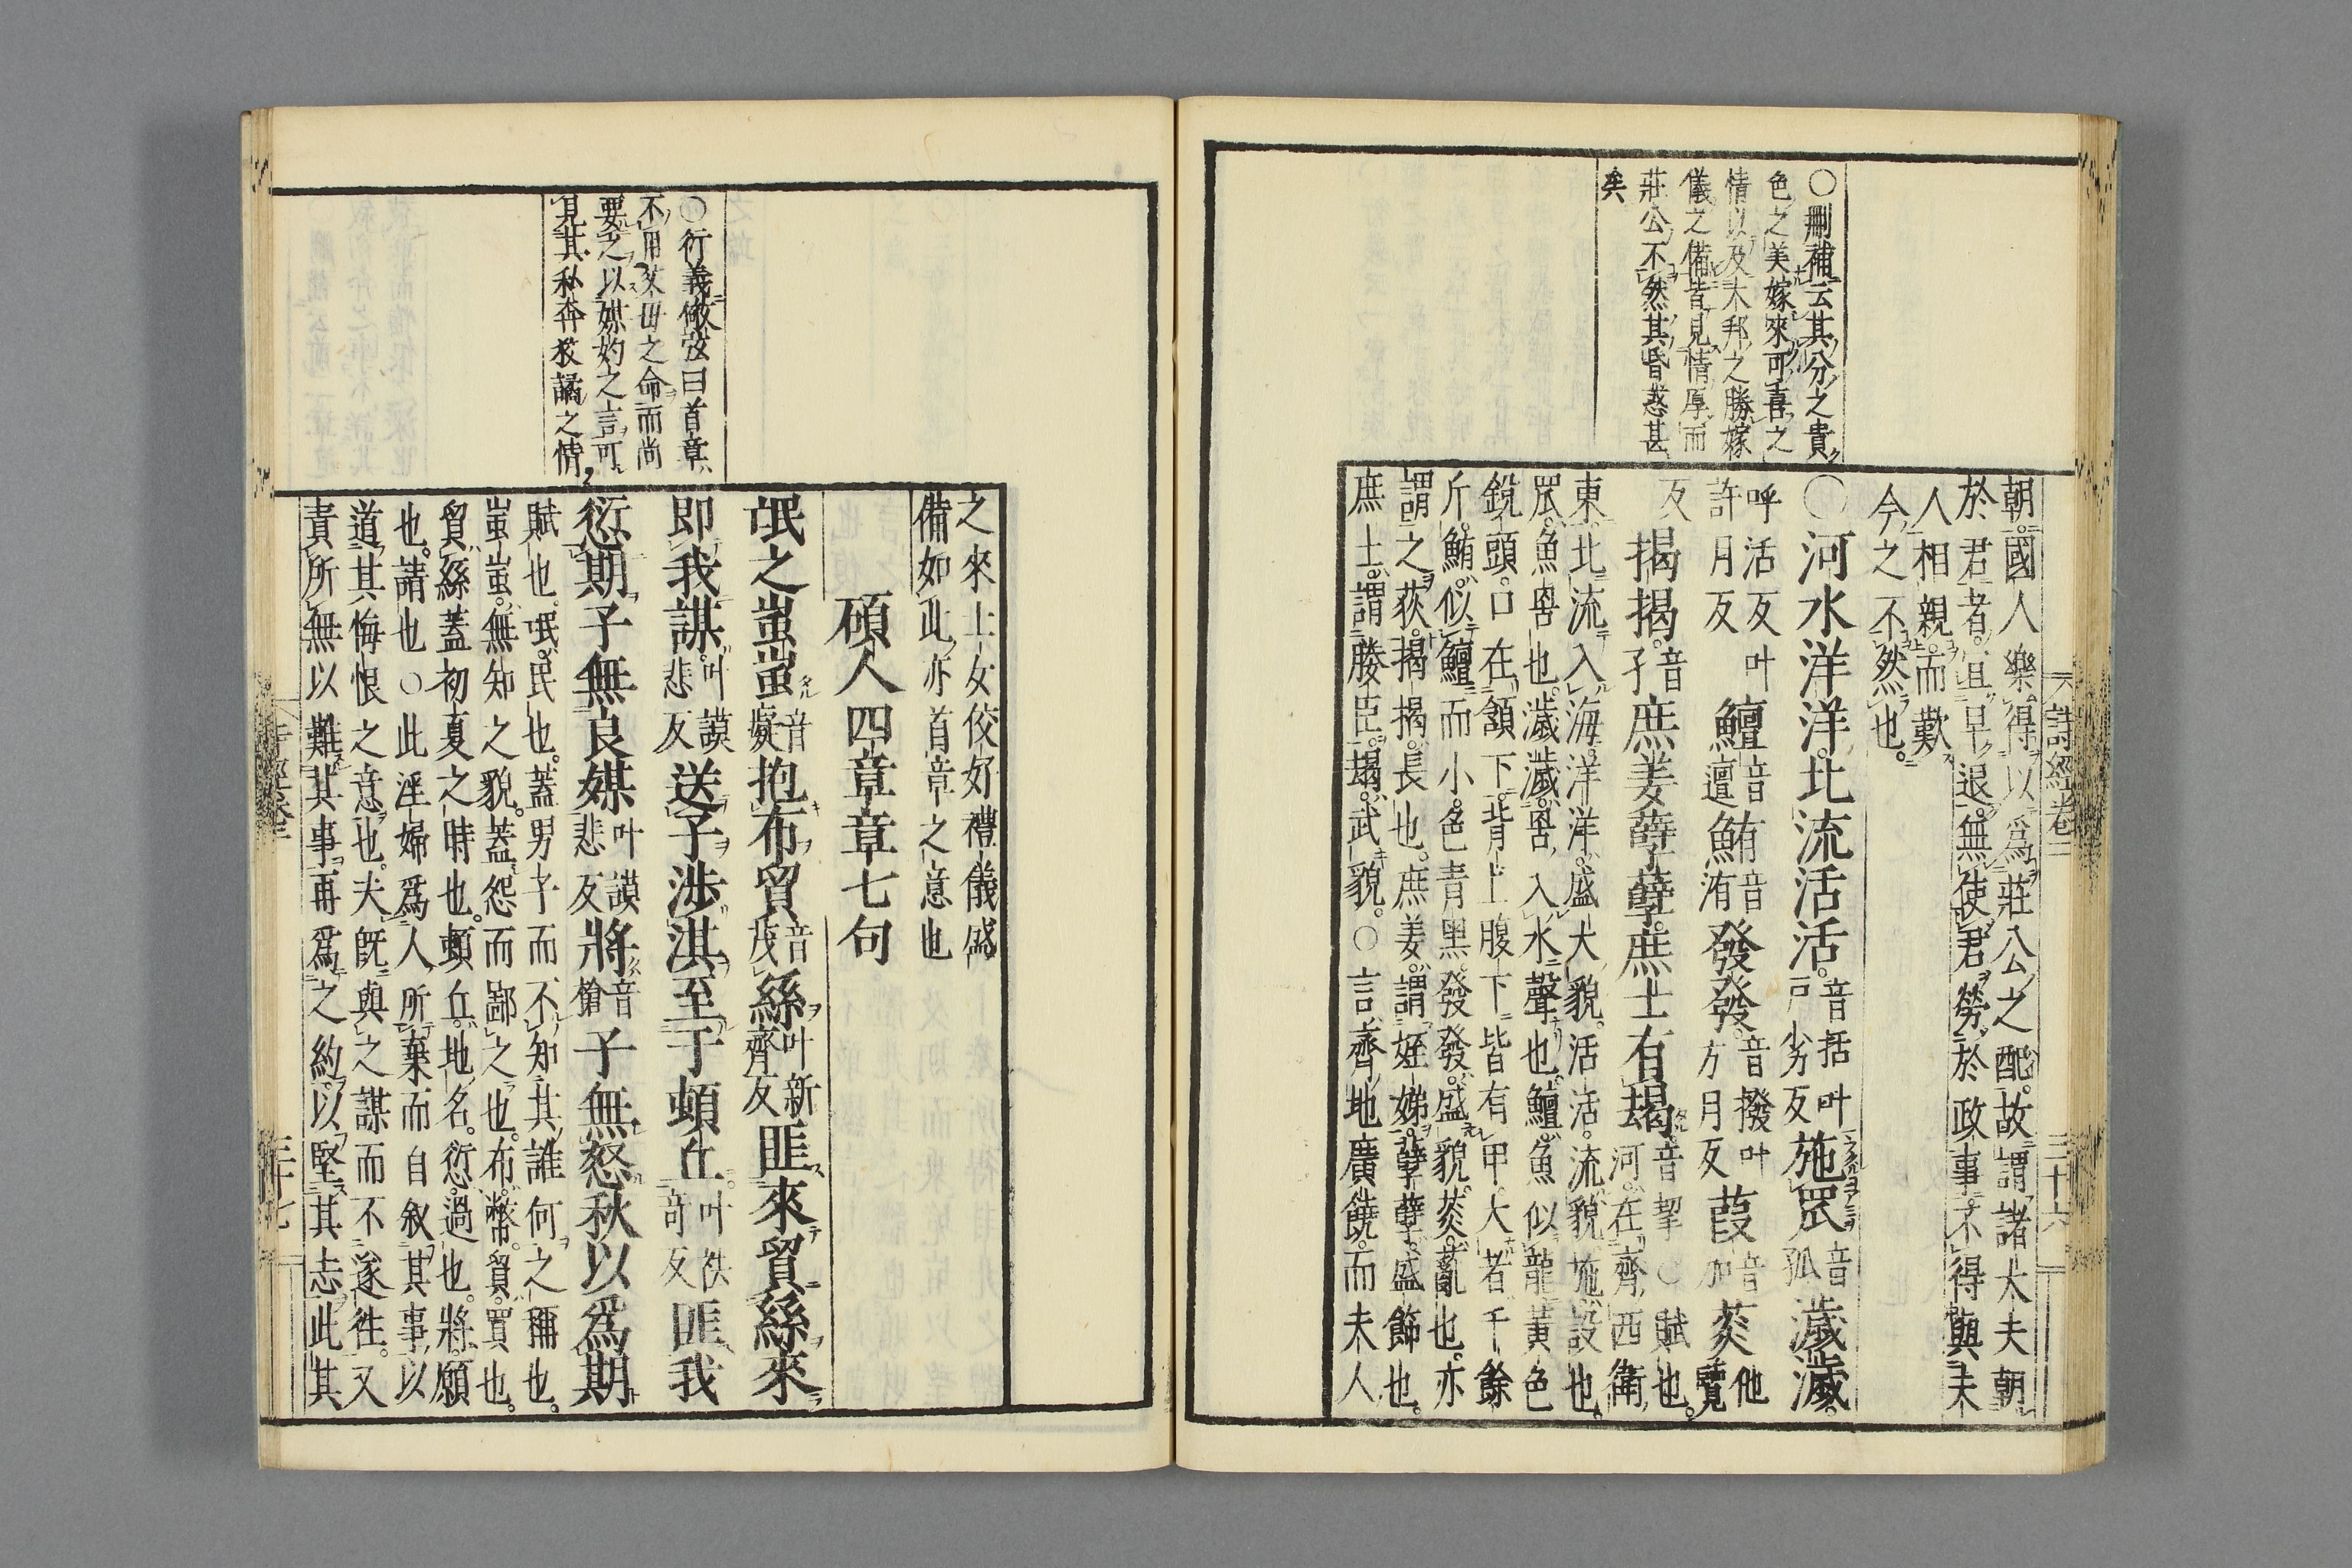 ○刪補云其分之貴
色之美嫁來可喜之
情以及大邦之勝嫁
儀之備皆見情厚而
莊公不然其昏惑甚
矣
朝國人樂得以爲莊公之配故謂諸大夫朝
於君者宜早退無使君勞於政事不得與夫
人相親而歎
今之不然也
○河水洋洋北流活活音括叶戸劣反施罛音孤濊濊
呼活反叶許月反鱣音邅鮪音洧發發音撥叶方月反葭音加菼他覽
反揭揭音孑庶姜孽孽庶士有朅音挈○賦也河在齊西衛
東北流入海洋洋盛大貌活活流貌施設也
罛魚罟也濊濊罟入水聲也鱣魚似龍黃色
銳頭口在頷下背上腹下皆有甲大者千餘
斤鮪似鱣而小色青黑發發盛貌菼薍也亦
謂之荻揭揭長也庶姜謂姪娣孽孽盛飾也
庶士謂媵臣朅武貌○言齊地廣饒而夫人
詩經卷二
三十六
○衍義倣弦曰首章
不用父母之命而尚
要之以媒妁之言可
見其私奔狡譎之情
之來士女佼好禮儀盛
備如此亦首章之意也
碩人四章章七句
氓之蚩蚩音癡抱布貿音茂絲叶新齊反匪來貿絲來
即我謀叶謨悲反送子涉淇至于頓丘叶祛奇反匪我
愆期子無良媒叶謨悲反將音鎗子無怒秋以爲期
賦也氓民也蓋男子而不知其誰何之稱也
蚩蚩無知之貌蓋怨而鄙之也布幣貿買也
貿絲蓋初夏之時也頓丘地名愆過也將願
也請也○此淫婦爲人所棄而自叙其事以
道其悔恨之意也夫既與之謀而不遂往又
責所無以難其事再爲之約以堅其志此其
三十七